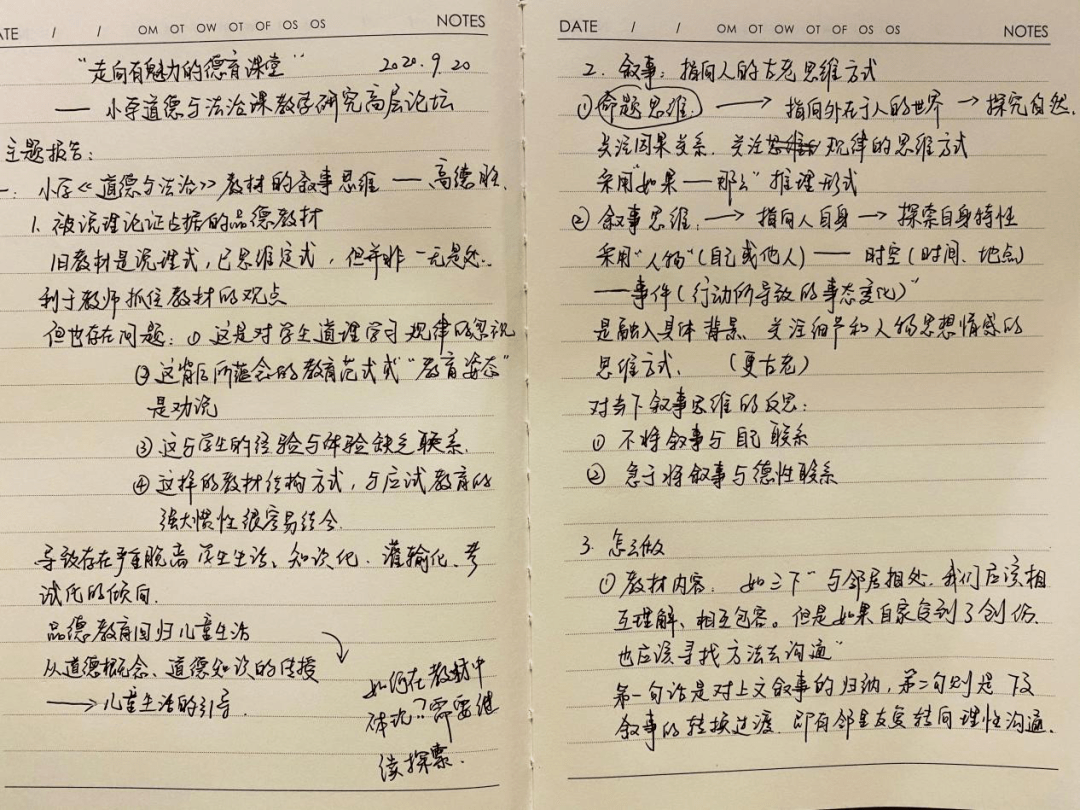 ATE / / OM OT OW OT OF OS OS NOTES
“走向有魅力的德育课堂” 2020.9.20
—— 小学道德与法治课教学研究高层论坛
主题报告：
一、小学《道德与法治》教材的叙事思维 —— 高德胜
1. 被说理论证占据的品德教材
旧教材是说理式，已思维定式，但并非一无是处.
利于教师抓住教材的观点
但也存在问题：① 这是对学生道理学习规律的忽视
② 这背后所蕴含的教育范式或“教育姿态”
是劝说
③ 这与学生的经验与体验缺乏联系.
④ 这样的教材结构方式，与应试教育的
强大惯性很容易结合.
导致存在严重脱离学生生活、知识化、灌输化、考
试化的倾向.
品德教育回归儿童生活
从道德概念、道德知识的传授
——> 儿童生活的引导.
如何在教材中
体现？需要继
续探索.
DATE / / OM OT OW OT OF OS OS NOTES
2. 叙事：指向人的古老思维方式
① 命题思维. ——> 指向外在于人的世界 → 探究自然.
关注因果关系. 关注规律的思维方式
采用“如果——那么”推理形式
② 叙事思维. ——> 指向人自身 → 探索自身特性
采用“人物”（自己或他人）—— 时空（时间、地点）
——事件（行动所导致的事态变化）”
是融入具体背景、关注细节和人物思想情感的
思维方式. （更古老）
对当下叙事思维的反思：
① 不将叙事与自己联系
② 急于将叙事与德性联系
3. 怎么做
① 教材内容. 如三下“与邻居相处. 我们应该相
互理解、相互包容。但是如果自家受到了创伤.
也应该寻找方法去沟通”
第一句话是对上文叙事的归纳，第二句则是下段
叙事的转换过渡. 即有邻里友爱转向理性沟通.